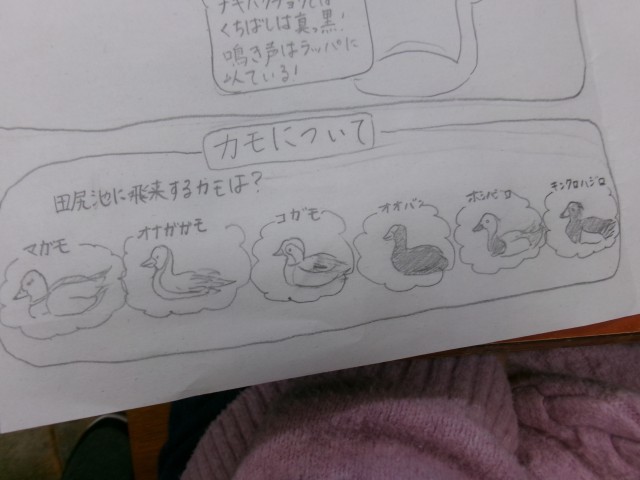 くちばしは真っ黒!
鳴き声はラッパに
似ている!
カモについて
田尻池に飛来するカモは?
マガモ
オナガガモ
コガモ
オオバン
ホシハジロ
キンクロハジロ